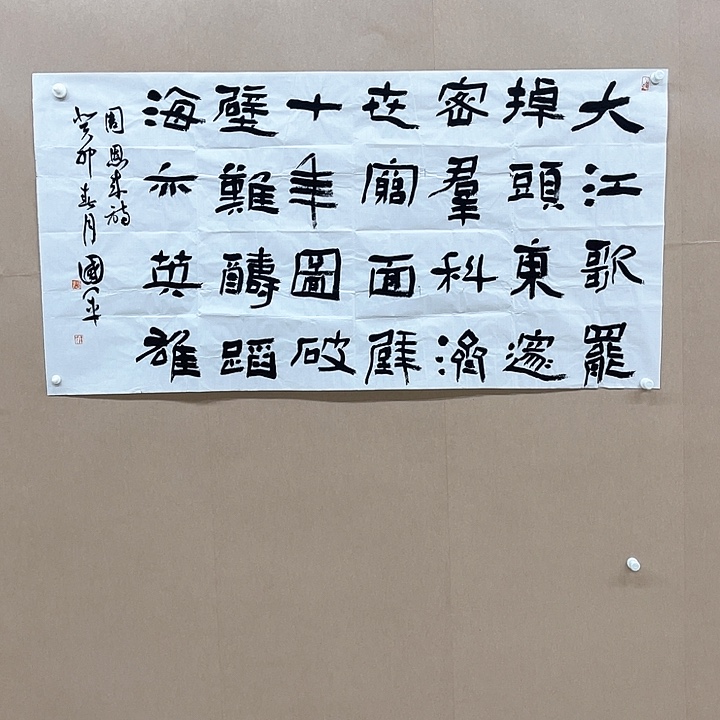 大江歌罷
掉頭東邃
密羣科濟
世窮面壁
十年圖破
壁難醻蹈
海亦英雄
周恩来詩
癸卯春月國